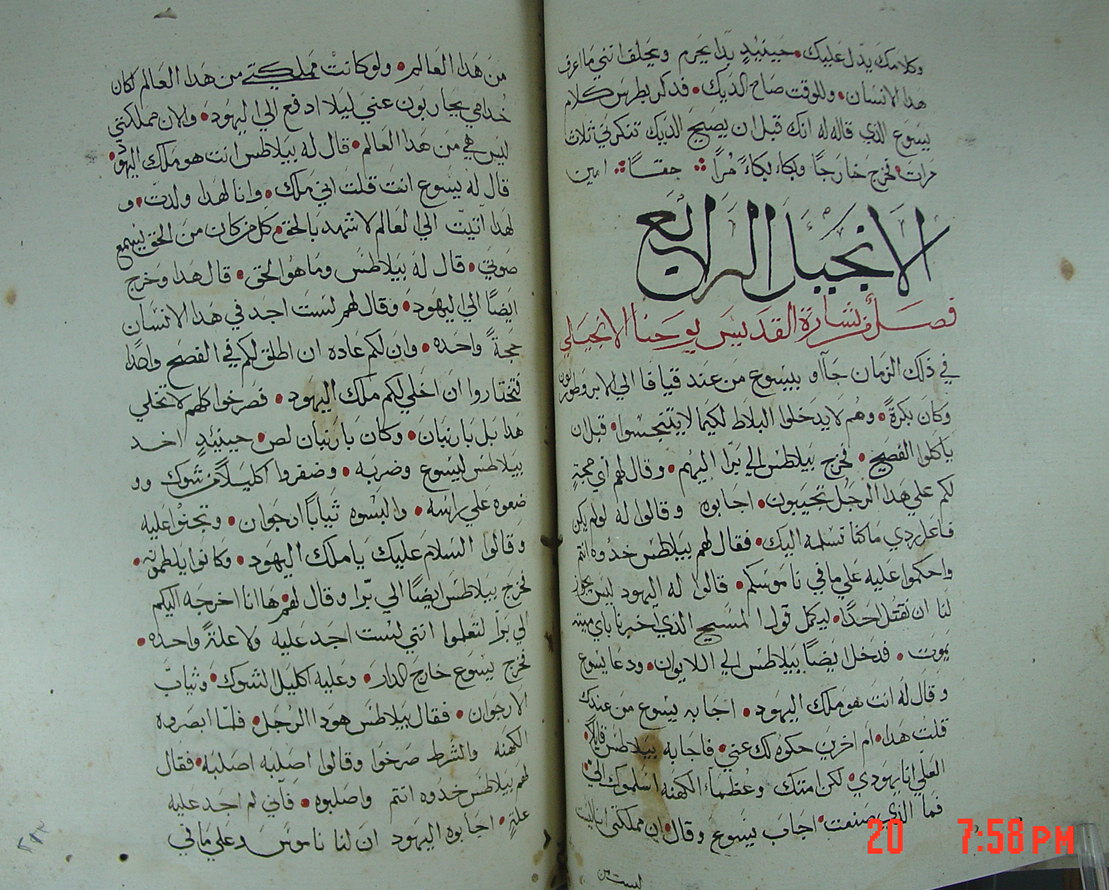 وكلامك يدل عليك • حينيدٍ بدا يحرم ويحلف انني ما اعرف
هدا الانسان • وللوقت صاح الديك • فدكر بطرس كلام
يسوع الذي قاله له انك قبل ان يصيح الديك تنكرني ثلاث
مرات • فخرج خارجًا وبكا بكاءً مُرًا ❖ حقـًا ❖ امين
الانجيل الرابع
فصل من بشارة القديس يوحنا الانجيلي
في ذلك الزمان جآاو بيسوع من عند قيافا الي الابروطوريون
وكان بكرةً • وهم لا يدخلوا البلاط لكيما لا يتنجسوا • قبل ان
ياكلوا الفصح • فخرج بيلاطس الي برا اليهم • وقال لهم اي حجةٍ
لكم علي هدا الرجل تجيبون • اجابوه وقالوا له لو لم يكن
فاعل ردي ما كنا نسلمه اليك • فقال لهم بيلاطس خدوه انتم
واحكموا عليه علي ما في ناموسكم • قالوا له اليهود ليس يجوز
لنا ان نقتل احدًا • ليكمل قول المسيح الذي اخبر باي ميتة
يموت • فدخل ايضًا بيلاطس الي الايوان • ودعا يسوع
وقال له انت هو ملك اليهود • اجابه يسوع من عندك
قلت هدا • ام اخرين حكوه لك عني • فاجابه بيلاطس قايلًا
العلي انا يهودي • لكن امتك وعظماء الكهنه اسلموك الي
فما الذي صنعت • اجاب يسوع وقال • ان مملكتي انا ليست
ليست من
من هدا العالم • ولو كانت مملكتي من هدا العالم لكان
خدامي يحاربون عني ليلا ادفع الي اليهود • والان مملكتي
ليس هي من هدا العالم • قال له بيلاطس انت هو ملك اليهود •
قال له يسوع انت قلت اني ملك • وانا لهدا ولدت • و
لهدا اتيت الي العالم لاشهد بالحق • كل من كان من الحق يسمع
صوتي • قال له بيلاطس وما هو الحق • قال هدا وخرج
ايضًا الي اليهود • وقال لهم لست اجد في هدا الانسان
حجةً واحده • وان لكم عاده ان اطلق لكم في الفصح واحدًا
تختاروا ان اخلي لكم ملك اليهود • فصرخوا كلهم لا تخلي
هدا بل باربَّان • وكان باربَّان لص • حينيدٍ اخد
بيلاطس ليسوع وضربه • وضفروا اكليلًا من شوك وو
ضعوه علي راسه • والبسوه ثيابًا ارجوان • وتحنوا عليه
وقالوا السلام عليك يا ملك اليهود • وكانوا يلطمونه •
فخرج بيلاطس ايضًا الي برّا وقال لهم • ها انا اخرجه اليكم
الي برا لتعلموا انني لست اجد عليه ولا علةً واحده •
فخرج يسوع خارج الدار • وعليه اكليل الشوك • وثياب
الارجوان • فقال بيلاطس هودا الرجل • فلما ابصروه
الكهنه والشرط صرخوا وقالوا اصلبه اصلبه • فقال
لهم بيلاطس خدوه انتم واصلبوه • فاني لم اجد عليه
علةٍ • اجابوه اليهود ان لنا ناموس وعلي ما في
20 7:58 PM